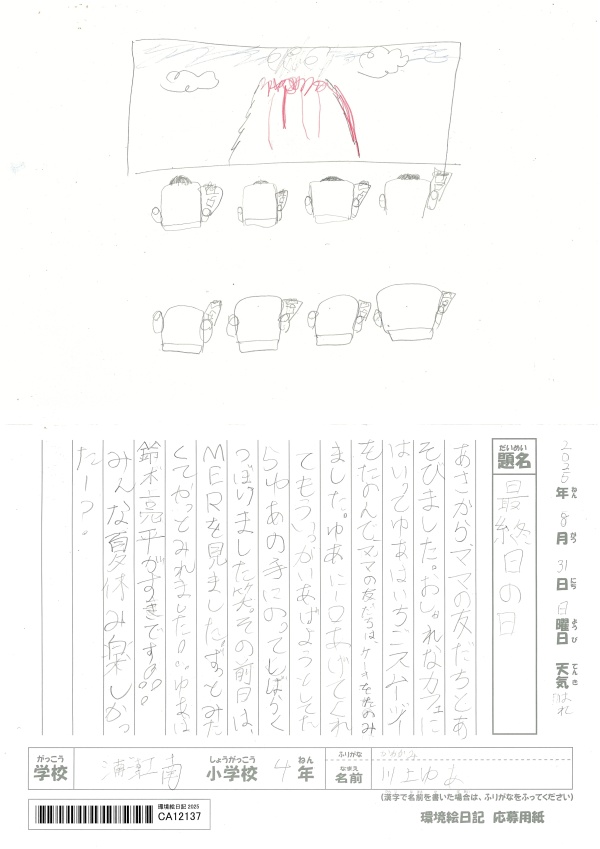 2025年 8月 31日 日曜日 天気 はれ
ねん がつ にち ようび てんき
だいめい
題名
最終日の日
あさから、ママの友だちとあ
そびました。おしゃれなカフェに
はいってゆあはいちごスムージィー
をたのんでママの友だちは、ケーキをたのみ
ました。ゆあに一口あげてくれ
てもういっかいあげようとしてた
らゆあの手にのってしばらく
っぽいました笑。その前日は
MERを見ました。ずっとみた
くてやっとみれました。ゆあは
鈴木亮平がすきです
みんな夏休み楽しかっ
たーっ。
がっこう
学校
南
しょうがっこう
小学校
4年
ねん
ふりがな
かわかみ
なまえ
名前
川上ゆあ
(漢字で名前を書いた場合は、ふりがなをふってください)
環境絵日記 2025
CA12137
環境絵日記 応募用紙